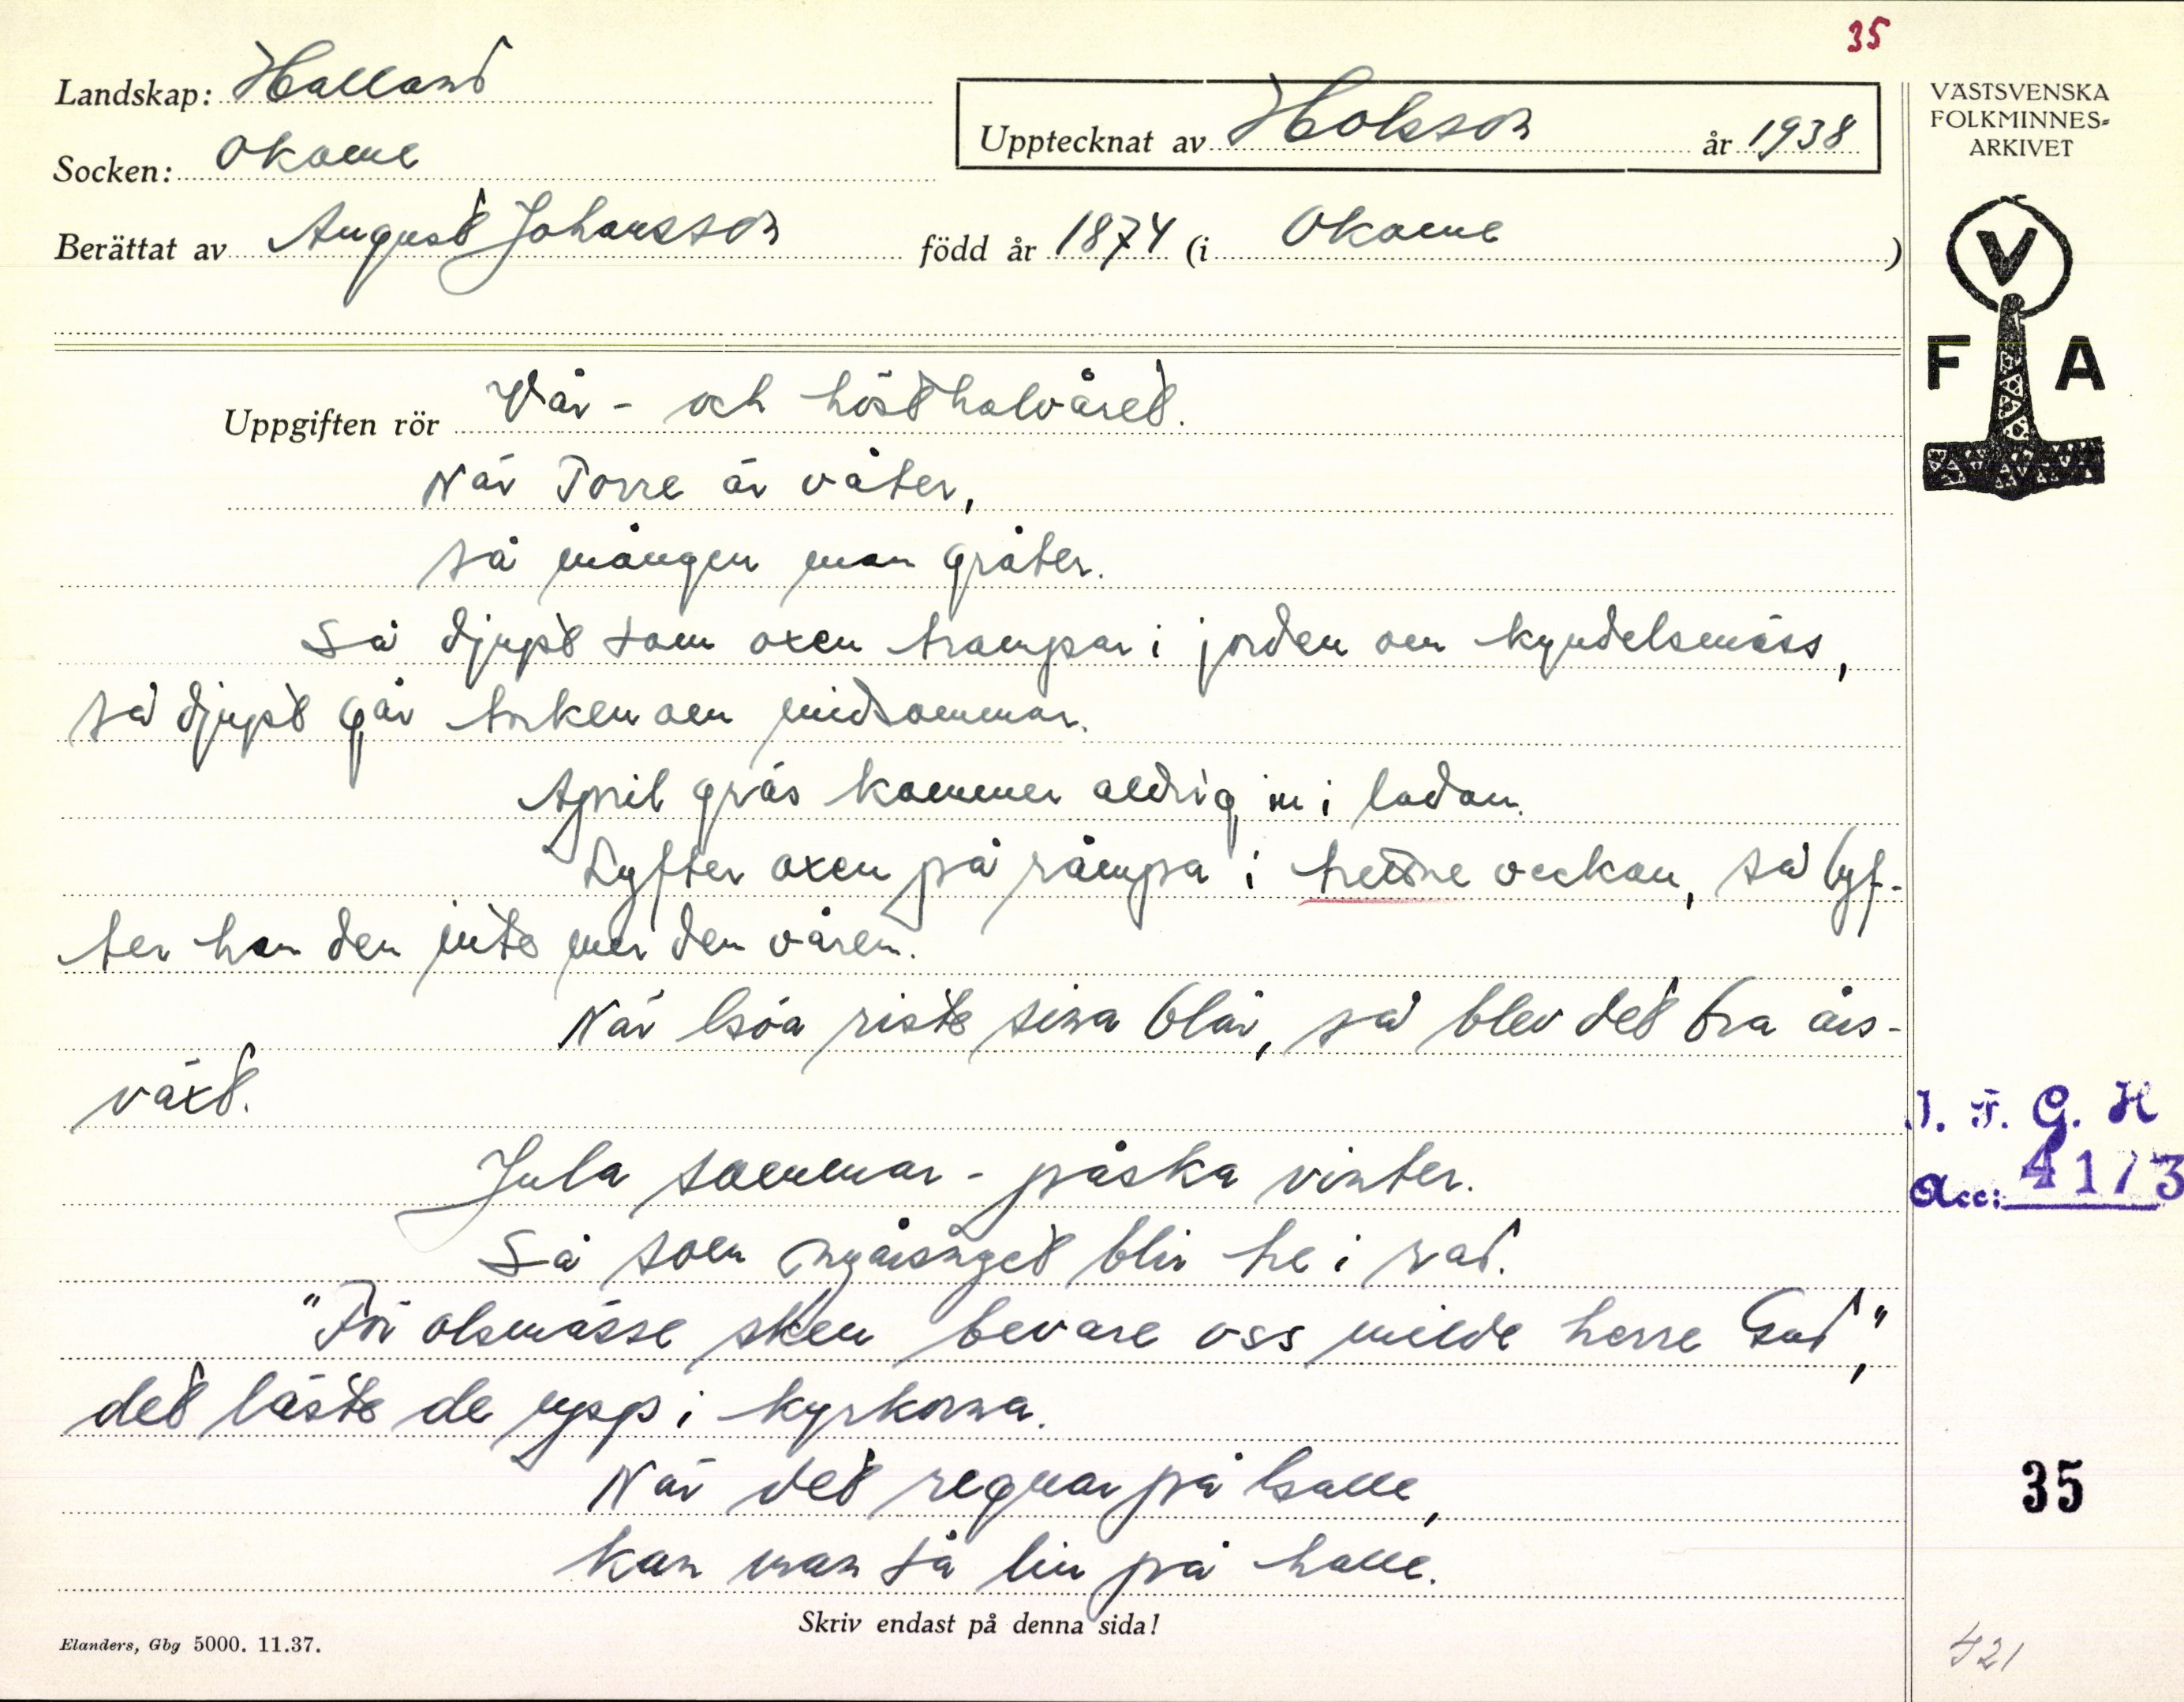 35
Landskap: Halland
Socken: Okome
Upptecknat av Holsson år 1938
Berättat av August Johansson född år 1874 (i Okome )
VÄSTSVENSKA
FOLKMINNES-
ARKIVET
V
F A
Uppgiften rör Vår- och hösthalvåret.
När Torre är våter,
så mången man gråter.
Så djupt som oxen trampar i jorden om kyndelsmäss,
så djupt går torken om midsommar.
April gräs kommer aldrig in i ladan.
Lyfter oxen på rämpa i veckan, så lyf-
ter han den inte mer den våren.
När riste sina blår, så blev det bra års-
växt.
Jula sommar - påska vinter.
Så som nyårsnyet blir tre i rad.
"För olsmässe sken bevare oss milde herre Gud",
det läste de upp i kyrkorna.
När det regnar på kalle,
kan man så lin på halle.
J. F. G. H
Acc: 4173
35
Skriv endast på denna sida!
Elanders, Gbg 5000. 11.37.
421